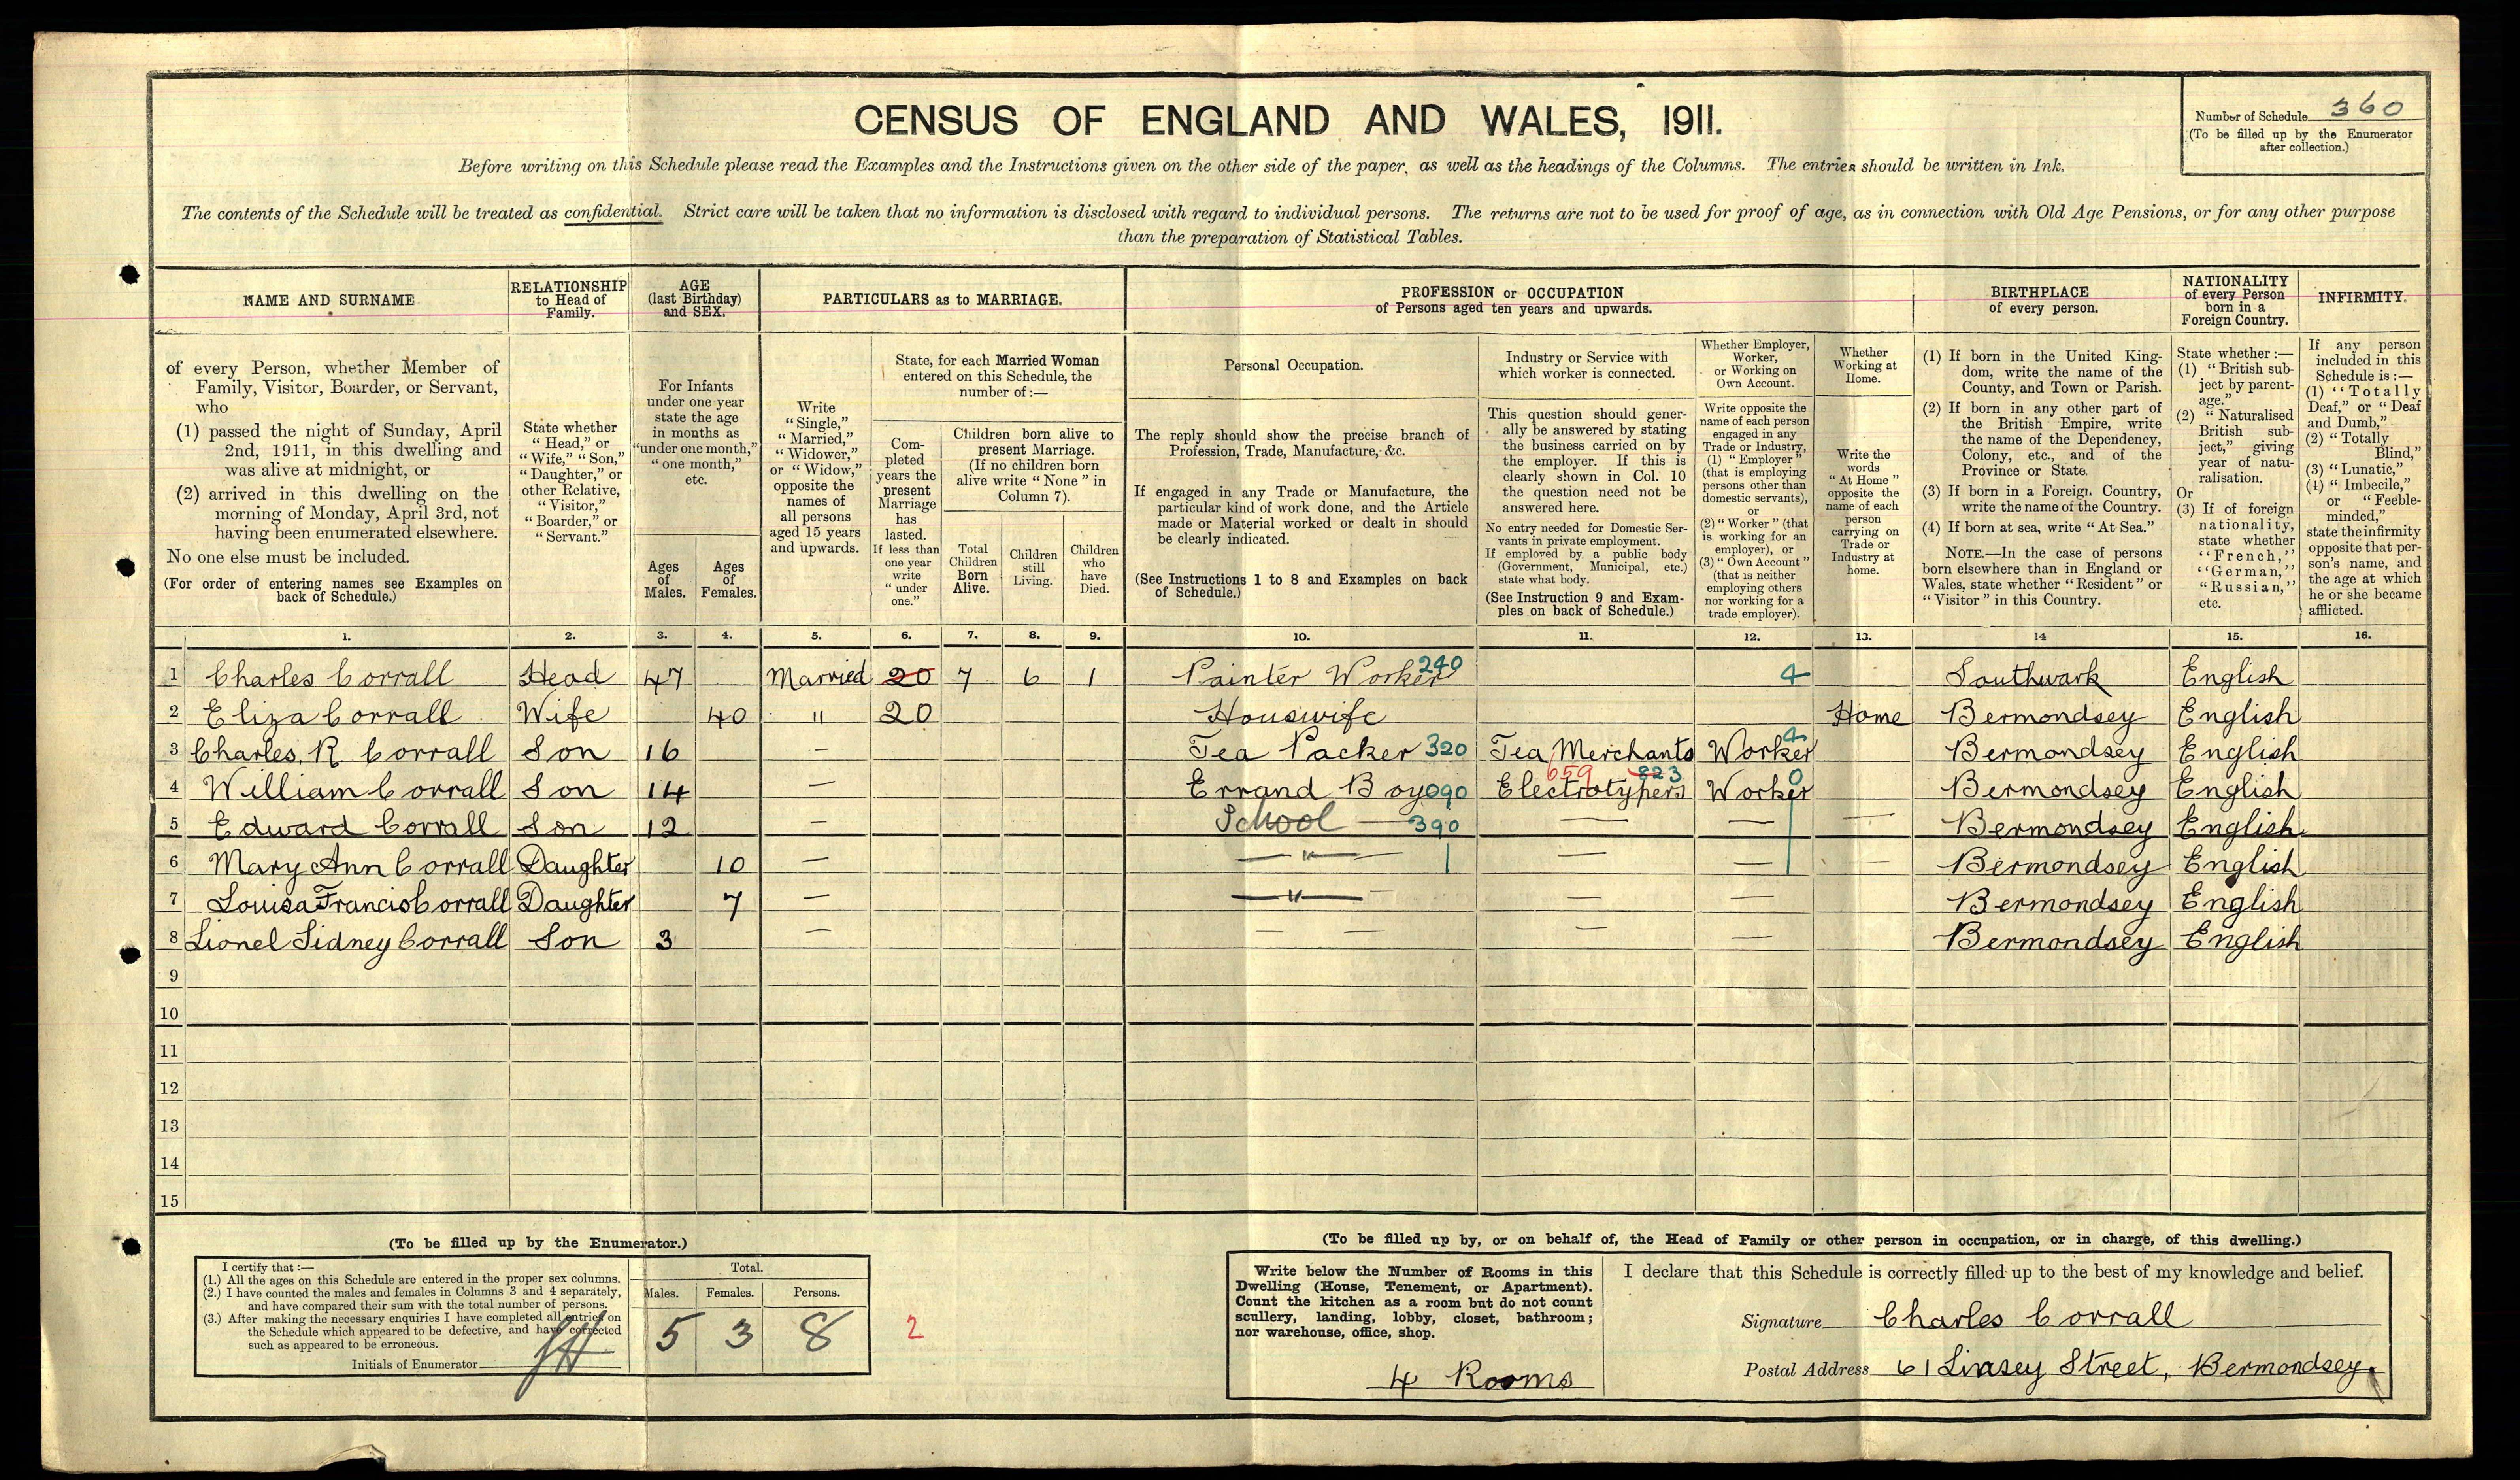 CENSUS OF ENGLAND AND WALES, 1911.
Number of Schedule 360
(To be filled up by the Enumerator
after collection.)
Before writing on this Schedule please read the Examples and the Instructions given on the other side of the paper, as well as the headings of the Columns. The entries should be written in Ink.
The contents of the Schedule will be treated as confidential. Strict care will be taken that no information is disclosed with regard to individual persons. The returns are not to be used for proof of age, as in connection with Old Age Pensions, or for any other purpose
than the preparation of Statistical Tables.
NAME AND SURNAME
RELATIONSHIP
to Head of
Family.
AGE
(last Birthday)
and SEX.
PARTICULARS as to MARRIAGE.
PROFESSION or OCCUPATION
of Persons aged ten years and upwards.
BIRTHPLACE
of every person.
NATIONALITY
of every Person
born in a
Foreign Country.
INFIRMITY.
of every Person, whether Member of
Family, Visitor, Boarder, or Servant,
who
(1) passed the night of Sunday, April
2nd, 1911, in this dwelling and
was alive at midnight, or
(2) arrived in this dwelling on the
morning of Monday, April 3rd, not
having been enumerated elsewhere.
No one else must be included.
(For order of entering names see Examples on
back of Schedule.)
State whether
"Head," or
"Wife," "Son,"
"Daughter," or
other Relative,
"Visitor,"
"Boarder," or
"Servant."
For Infants
under one year
state the age
in months as
"under one month,"
"one month,"
etc.
Ages
of
Males.
Ages
of
Females.
Write
"Single,"
"Married,"
"Widower,"
or "Widow,"
opposite the
names of
all persons
aged 15 years
and upwards.
State, for each Married Woman
entered on this Schedule, the
number of:—
Com-
pleted
years the
present
Marriage
has
lasted.
If less than
one year
write
"under
one."
Children born alive to
present Marriage.
(If no children born
alive write "None" in
Column 7).
Total
Children
Born
Alive.
Children
still
Living.
Children
who
have
Died.
Personal Occupation.
The reply should show the precise branch of
Profession, Trade, Manufacture, &c.
If engaged in any Trade or Manufacture, the
particular kind of work done, and the Article
made or Material worked or dealt in should
be clearly indicated.
(See Instructions 1 to 8 and Examples on back
of Schedule.)
Industry or Service with
which worker is connected.
This question should gener-
ally be answered by stating
the business carried on by
the employer. If this is
clearly shown in Col. 10
the question need not be
answered here.
No entry needed for Domestic Ser-
vants in private employment.
If employed by a public body
(Government, Municipal, etc.)
state what body.
(See Instruction 9 and Exam-
ples on back of Schedule.)
Whether Employer,
Worker,
or Working on
Own Account.
Write opposite the
name of each person
engaged in any
Trade or Industry,
(1) "Employer"
(that is employing
persons other than
domestic servants),
or
(2) "Worker" (that
is working for an
employer), or
(3) "Own Account"
(that is neither
employing others
nor working for a
trade employer).
Whether
Working at
Home.
Write the
words
"At Home"
opposite the
name of each
person
carrying on
Trade or
Industry at
home.
(1) If born in the United King-
dom, write the name of the
County, and Town or Parish.
(2) If born in any other part of
the British Empire, write
the name of the Dependency,
Colony, etc., and of the
Province or State.
(3) If born in a Foreign Country,
write the name of the Country.
(4) If born at sea, write "At Sea."
NOTE.—In the case of persons
born elsewhere than in England or
Wales, state whether "Resident" or
"Visitor" in this Country.
State whether:—
(1) "British sub-
ject by parent-
age."
(2) "Naturalised
British sub-
ject," giving
year of natu-
ralisation.
Or
(3) If of foreign
nationality,
state whether
"French,"
"German,"
"Russian,"
etc.
If any person
included in this
Schedule is:—
(1) "Totally
Deaf," or "Deaf
and Dumb,"
(2) "Totally
Blind,"
(3) "Lunatic,"
(4) "Imbecile,"
or "Feeble-
minded,"
state the infirmity
opposite that per-
son's name, and
the age at which
he or she became
afflicted.
1. 2. 3. 4. 5. 6. 7. 8. 9. 10. 11. 12. 13. 14 15. 16.
1 Charles Corrall Head 47 Married 20 7 6 1 Painter Worker 240 4 Southwark English
2 Eliza Corrall Wife 40 " 20 Houswife Home Bermondsey English
3 Charles. R. Corrall Son 16 — Tea Packer 320 Tea Merchants Worker 4 Bermondsey English
4 William Corrall Son 14 — Errand Boy 090 Electrotypers 659 223 Worker 0 Bermondsey English
5 Edward Corrall Son 12 — School — 390 — — — Bermondsey English.
6 Mary Ann Corrall Daughter 10 — — " — — — — Bermondsey English
7 Louisa Francis Corrall Daughter 7 — — " — — — Bermondsey English
8 Lionel Sidney Corrall Son 3 — — — — — Bermondsey English
9
10
11
12
13
14
15
(To be filled up by the Enumerator.)
I certify that:—
(1.) All the ages on this Schedule are entered in the proper sex columns.
(2.) I have counted the males and females in Columns 3 and 4 separately,
and have compared their sum with the total number of persons.
(3.) After making the necessary enquiries I have completed all entries on
the Schedule which appeared to be defective, and have corrected
such as appeared to be erroneous.
Initials of Enumerator
Total.
Males. Females. Persons.
5 3 8
2
(To be filled up by, or on behalf of, the Head of Family or other person in occupation, or in charge, of this dwelling.)
Write below the Number of Rooms in this
Dwelling (House, Tenement, or Apartment).
Count the kitchen as a room but do not count
scullery, landing, lobby, closet, bathroom;
nor warehouse, office, shop.
4 Rooms
I declare that this Schedule is correctly filled up to the best of my knowledge and belief.
Signature Charles Corrall
Postal Address 61 Linsey Street, Bermondsey.